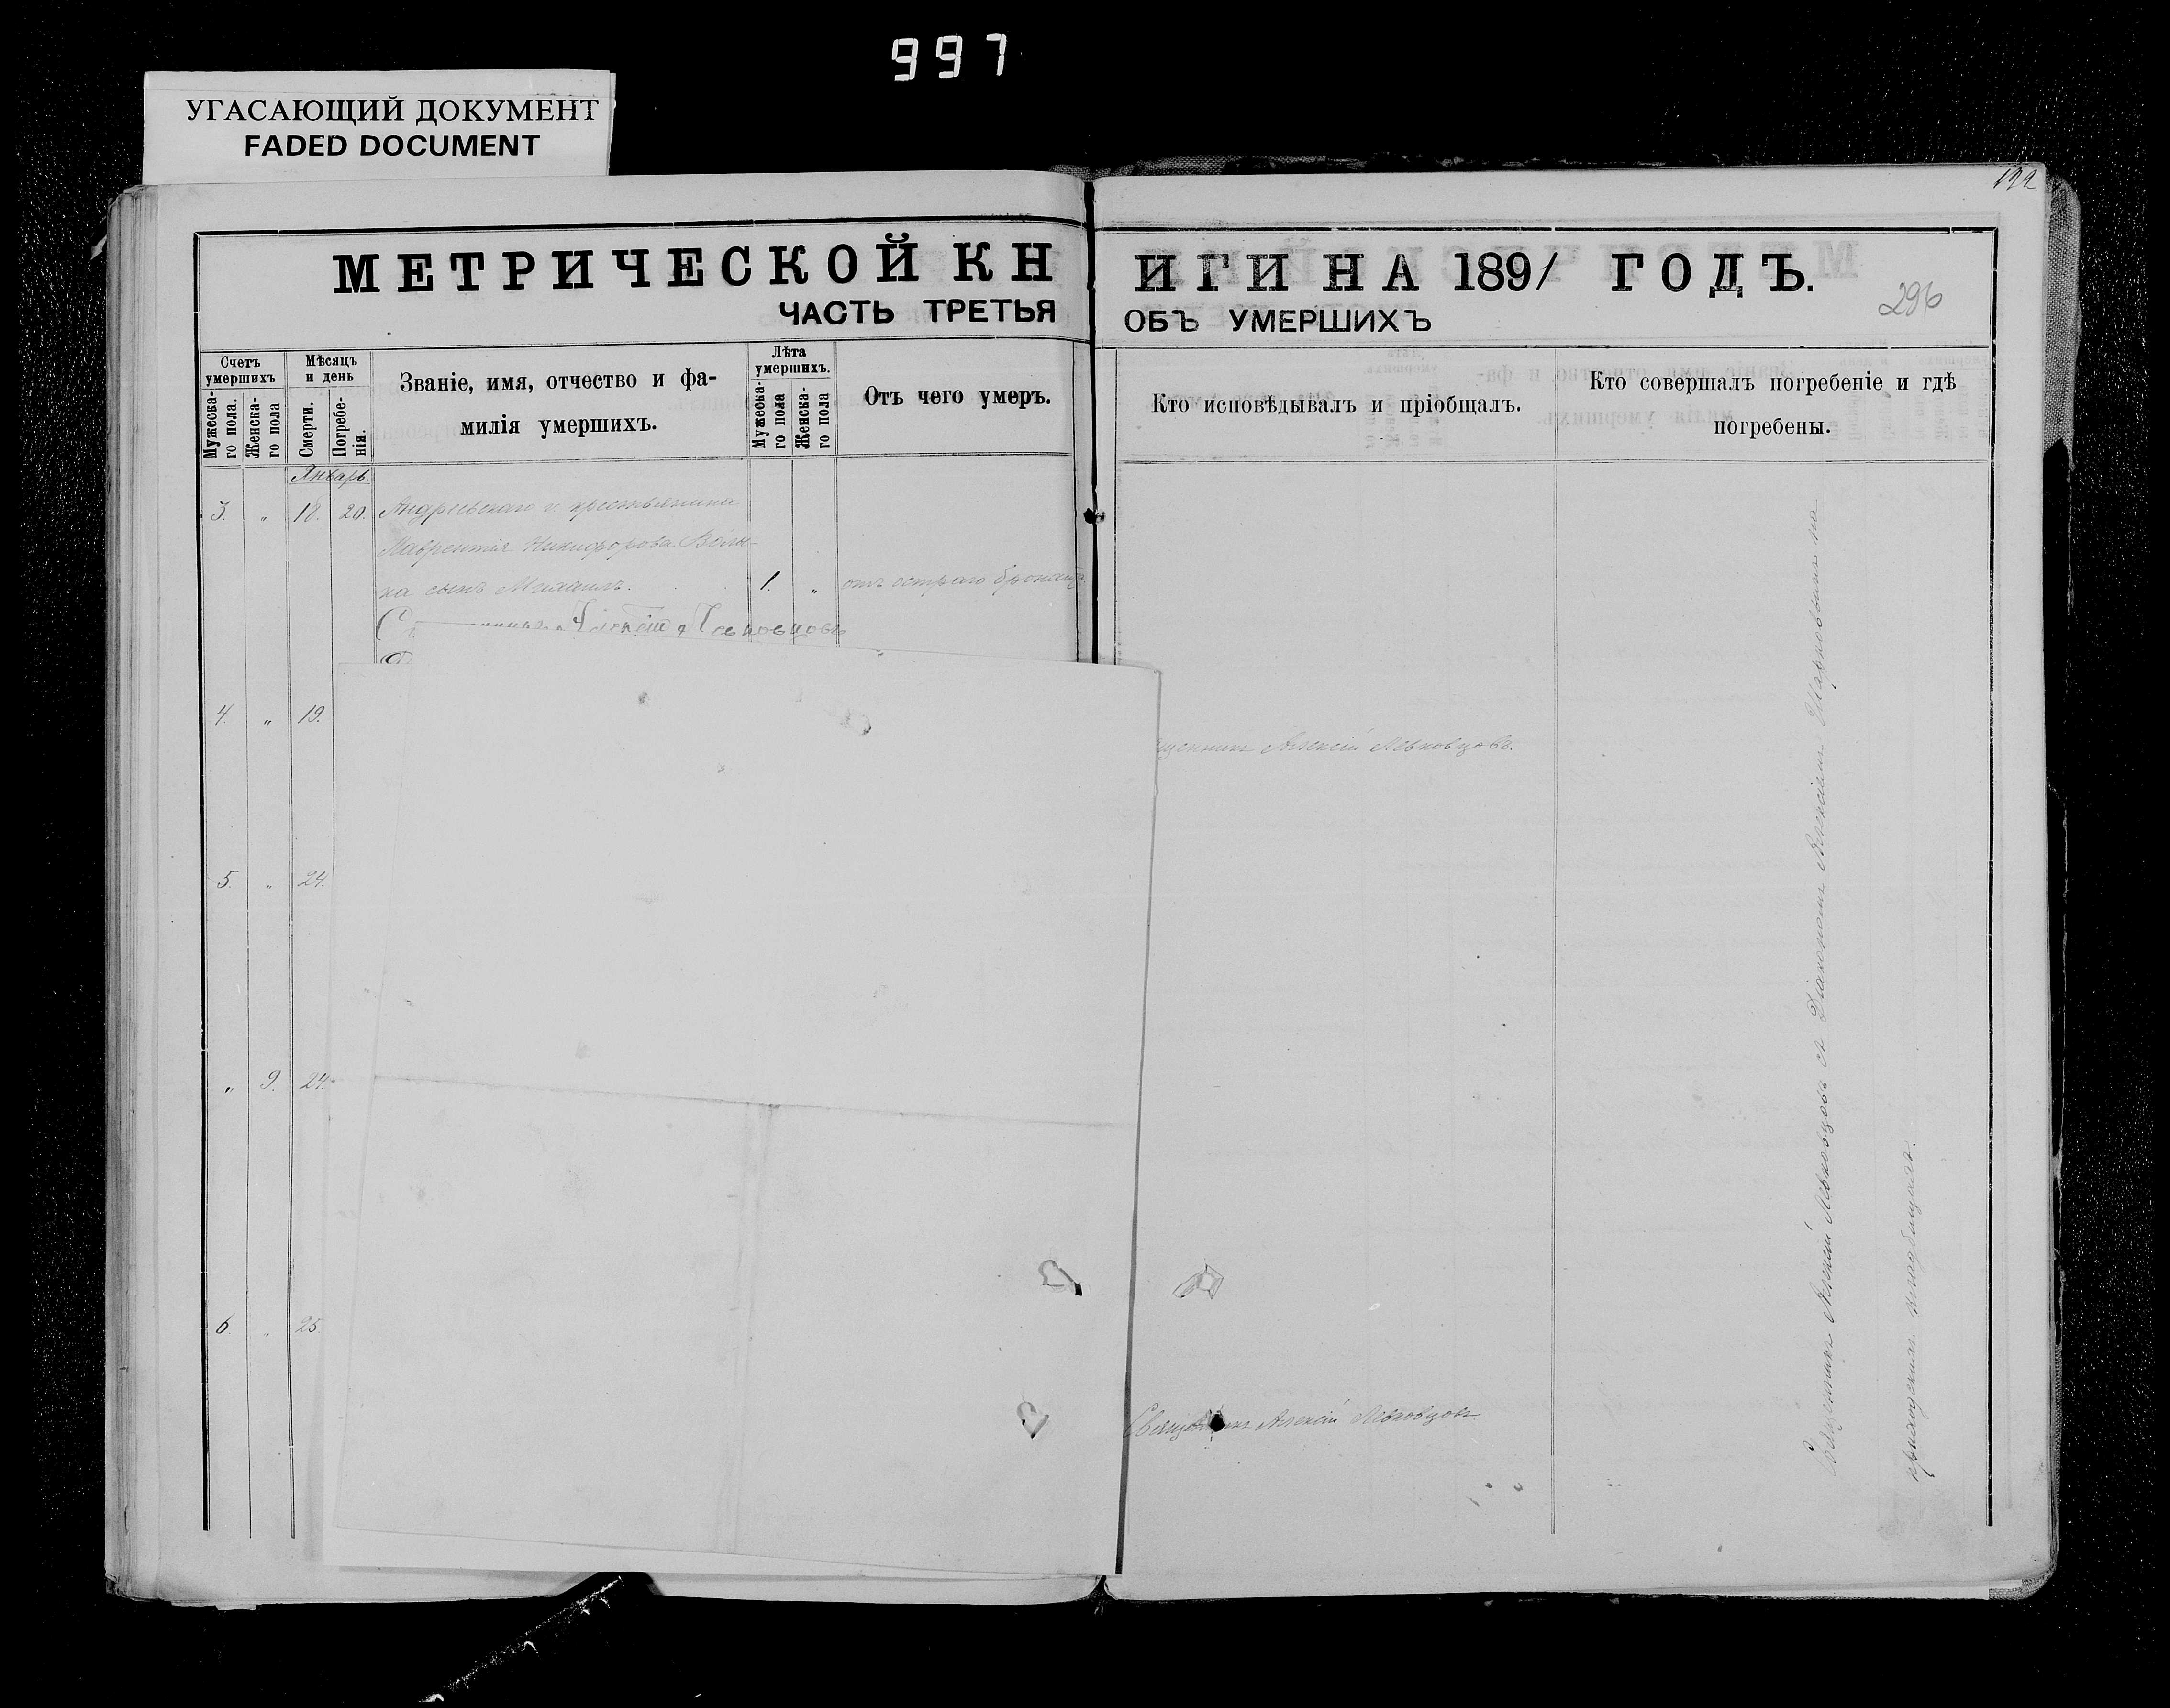 997
УГАСАЮЩИЙ ДОКУМЕНТ
FADED DOCUMENT
МЕТРИЧЕСКОЙ КН
ЧАСТЬ ТРЕТЬЯ
Счетъ умершихъ
Мѣсяцъ и день
Званіе, имя, отчество и фа-
милія умершихъ.
Лѣта умершихъ.
Отъ чего умеръ.
Мужеска-
го пола.
Женска-
го пола
Смерти.
Погребе-
нія.
Мужеска-
го пола
Женска-
го пола
Январь.
3. " 18. 20. Андреевскаго крестьянина
Лаврентія Никифорова Волы-
на сынъ Михаилъ. 1. " отъ остраго
Алексій Левковцовъ
4. " 19.
5. " 24.
" 9. 24.
6. " 25.
192
ИГИ НА 1891 ГОДЪ.
296
ОБЪ УМЕРШИХЪ
Кто исповѣдывалъ и пріобщалъ.
Кто совершалъ погребеніе и гдѣ
погребены.
Алексій Левковцовъ.
Священникъ Алексій Левковцовъ
Священникъ Алексій Левковцовъ съ Діакономъ Алексіемъ на
приходскомъ кладбищахъ.